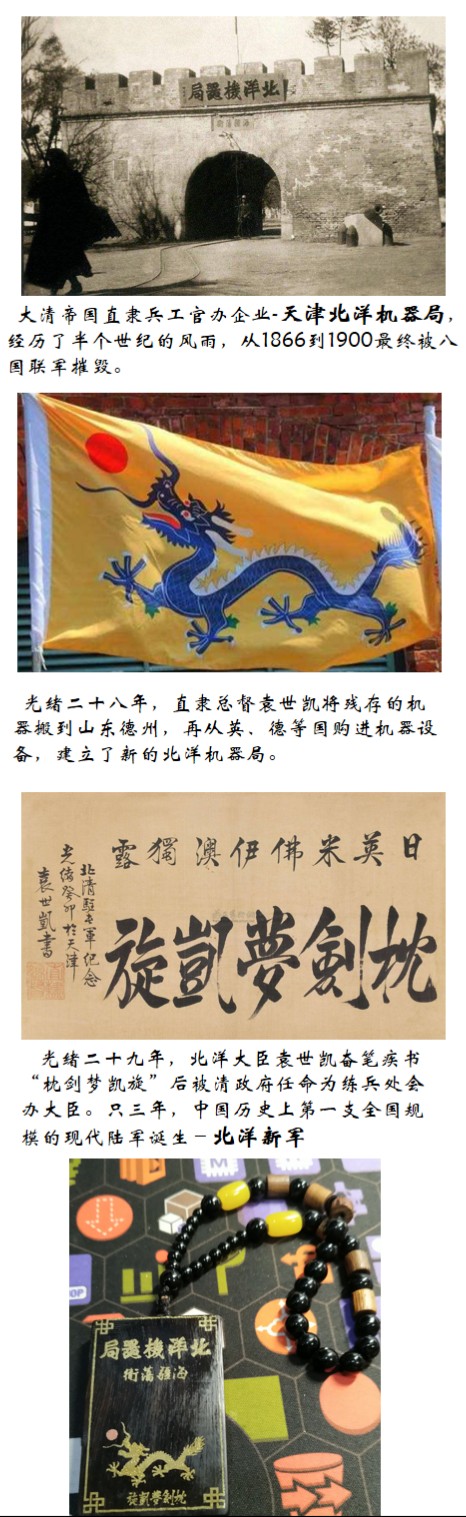 北洋機器局
大清帝国直隶兵工官办企业-天津北洋机器局，
经历了半个世纪的风雨，从1866到1900最终被八
国联军摧毁。
光绪二十八年，直隶总督袁世凯将残存的机
器搬到山东德州，再从英、德等国购进机器设
备，建立了新的北洋机器局。
日英米佛伊澳獨露
枕劍夢凱旋
北清駐屯軍紀念
光緒癸卯於天津
袁世凱書
光绪二十九年，北洋大臣袁世凯奋笔疾书
“枕剑梦凯旋”后被清政府任命为练兵处会
办大臣。只三年，中国历史上第一支全国规
模的现代陆军诞生－北洋新军
北洋機器局
海疆藩衛
枕劍夢凱旋